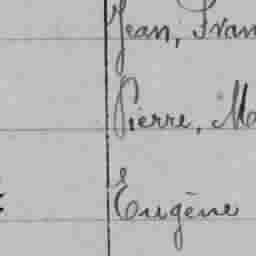 Jean, Fran
Pierre, Ma
Eugène